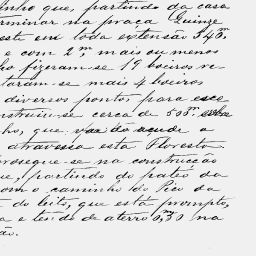 inho que, partindo da casa
rminar na praça Quinze
este em toda extensão 340m.
e com 2m, mais ou menos
ho fizeram-se 19 boeiros re
taram-se mais 4 boeiros
diversos pontos para esco
nstruiu-se cerca de 500m.
nho, que vae do açude a
atravessa esta Floresta
rosegue-se na construcção
ue, partindo do pateo da
com o caminho do Pico da
do leito, que está prompto,
a e tendo de aterro 0,m50 na
ão.